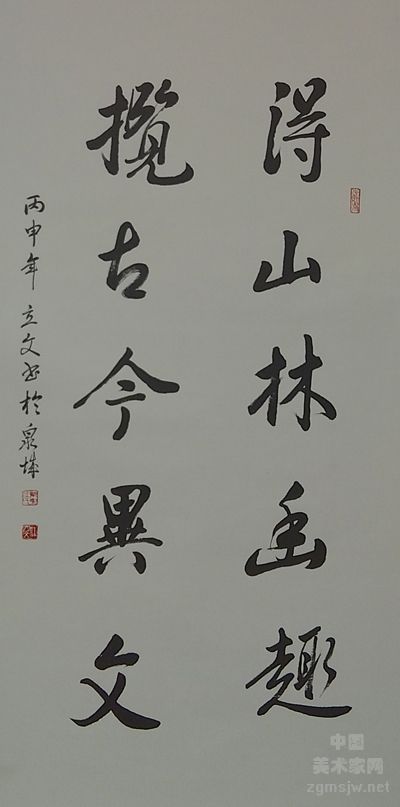 得山林幽趣
攬古今異文
丙申年立文书於泉城
中国
美术家网
zgmsjw.net